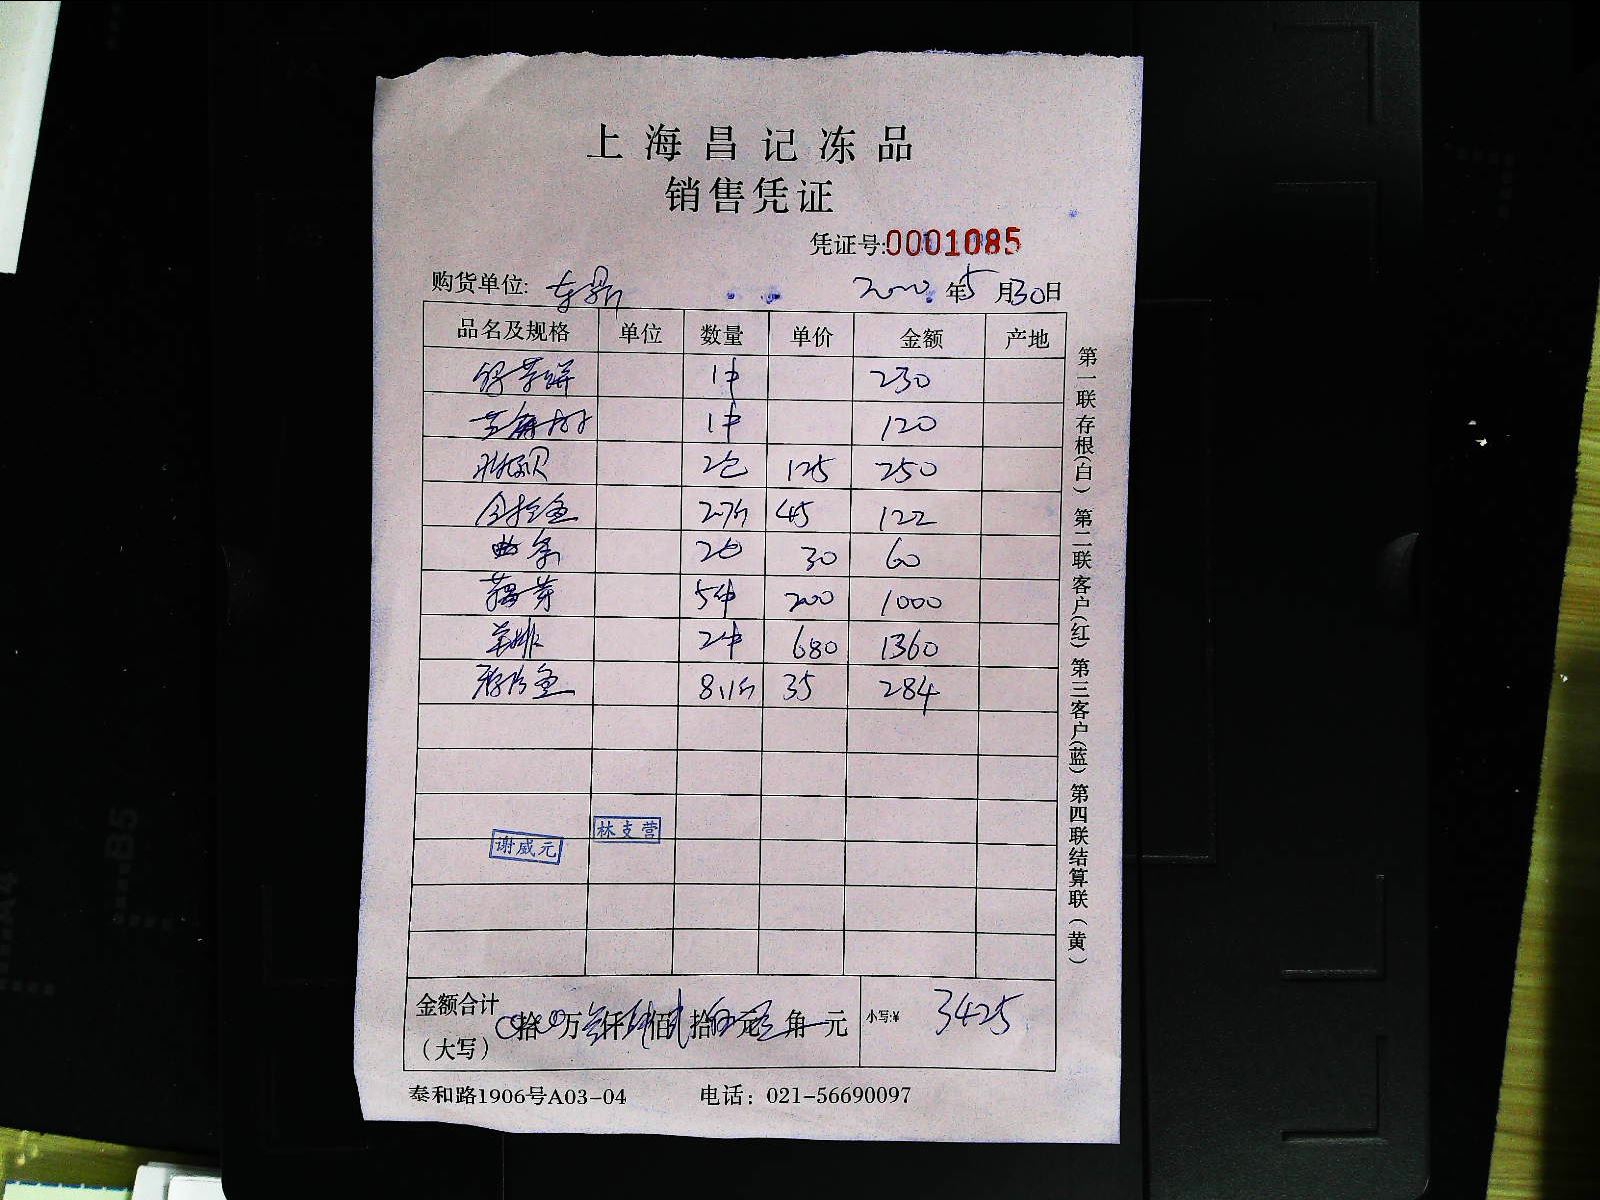 上海昌记冻品
销售凭证
凭证号:0001085
购货单位: 东鼎 2020年5月30日
品名及规格 单位 数量 单价 金额 产地
1件 230
1件 120
2包 125 250
2.7斤 45 122
2包 30 60
5件 200 1000
羊排 2件 680 1360
8.1斤 35 284
林支营
谢威元
金额合计（大写） 拾 万 仟 佰 拾 元 角 元 小写:¥ 3425
泰和路1906号A03-04 电话：021-56690097
第一联存根(白) 第二联客户(红) 第三客户(蓝) 第四联结算联(黄)